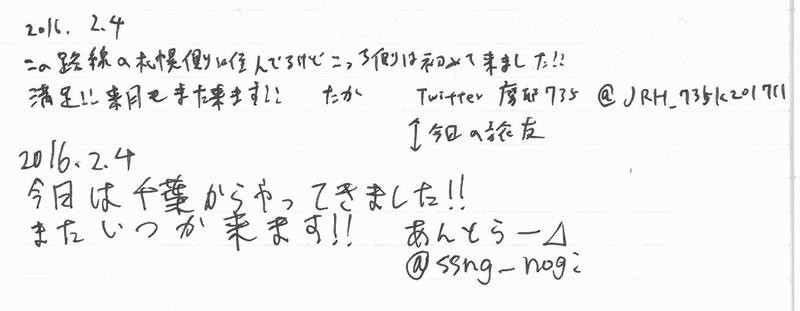 2016. 2.4
この路線の札幌側に住んでるけどこっち側は初めて来ました!!
満足!! 来月もまた来ます!! たか Twitter 735 @JRH_735k201711
↕今日の旅友
2016.2.4
今日は千葉からやってきました!!
またいつか来ます!! あんとらー⊿
@ssng_nogi